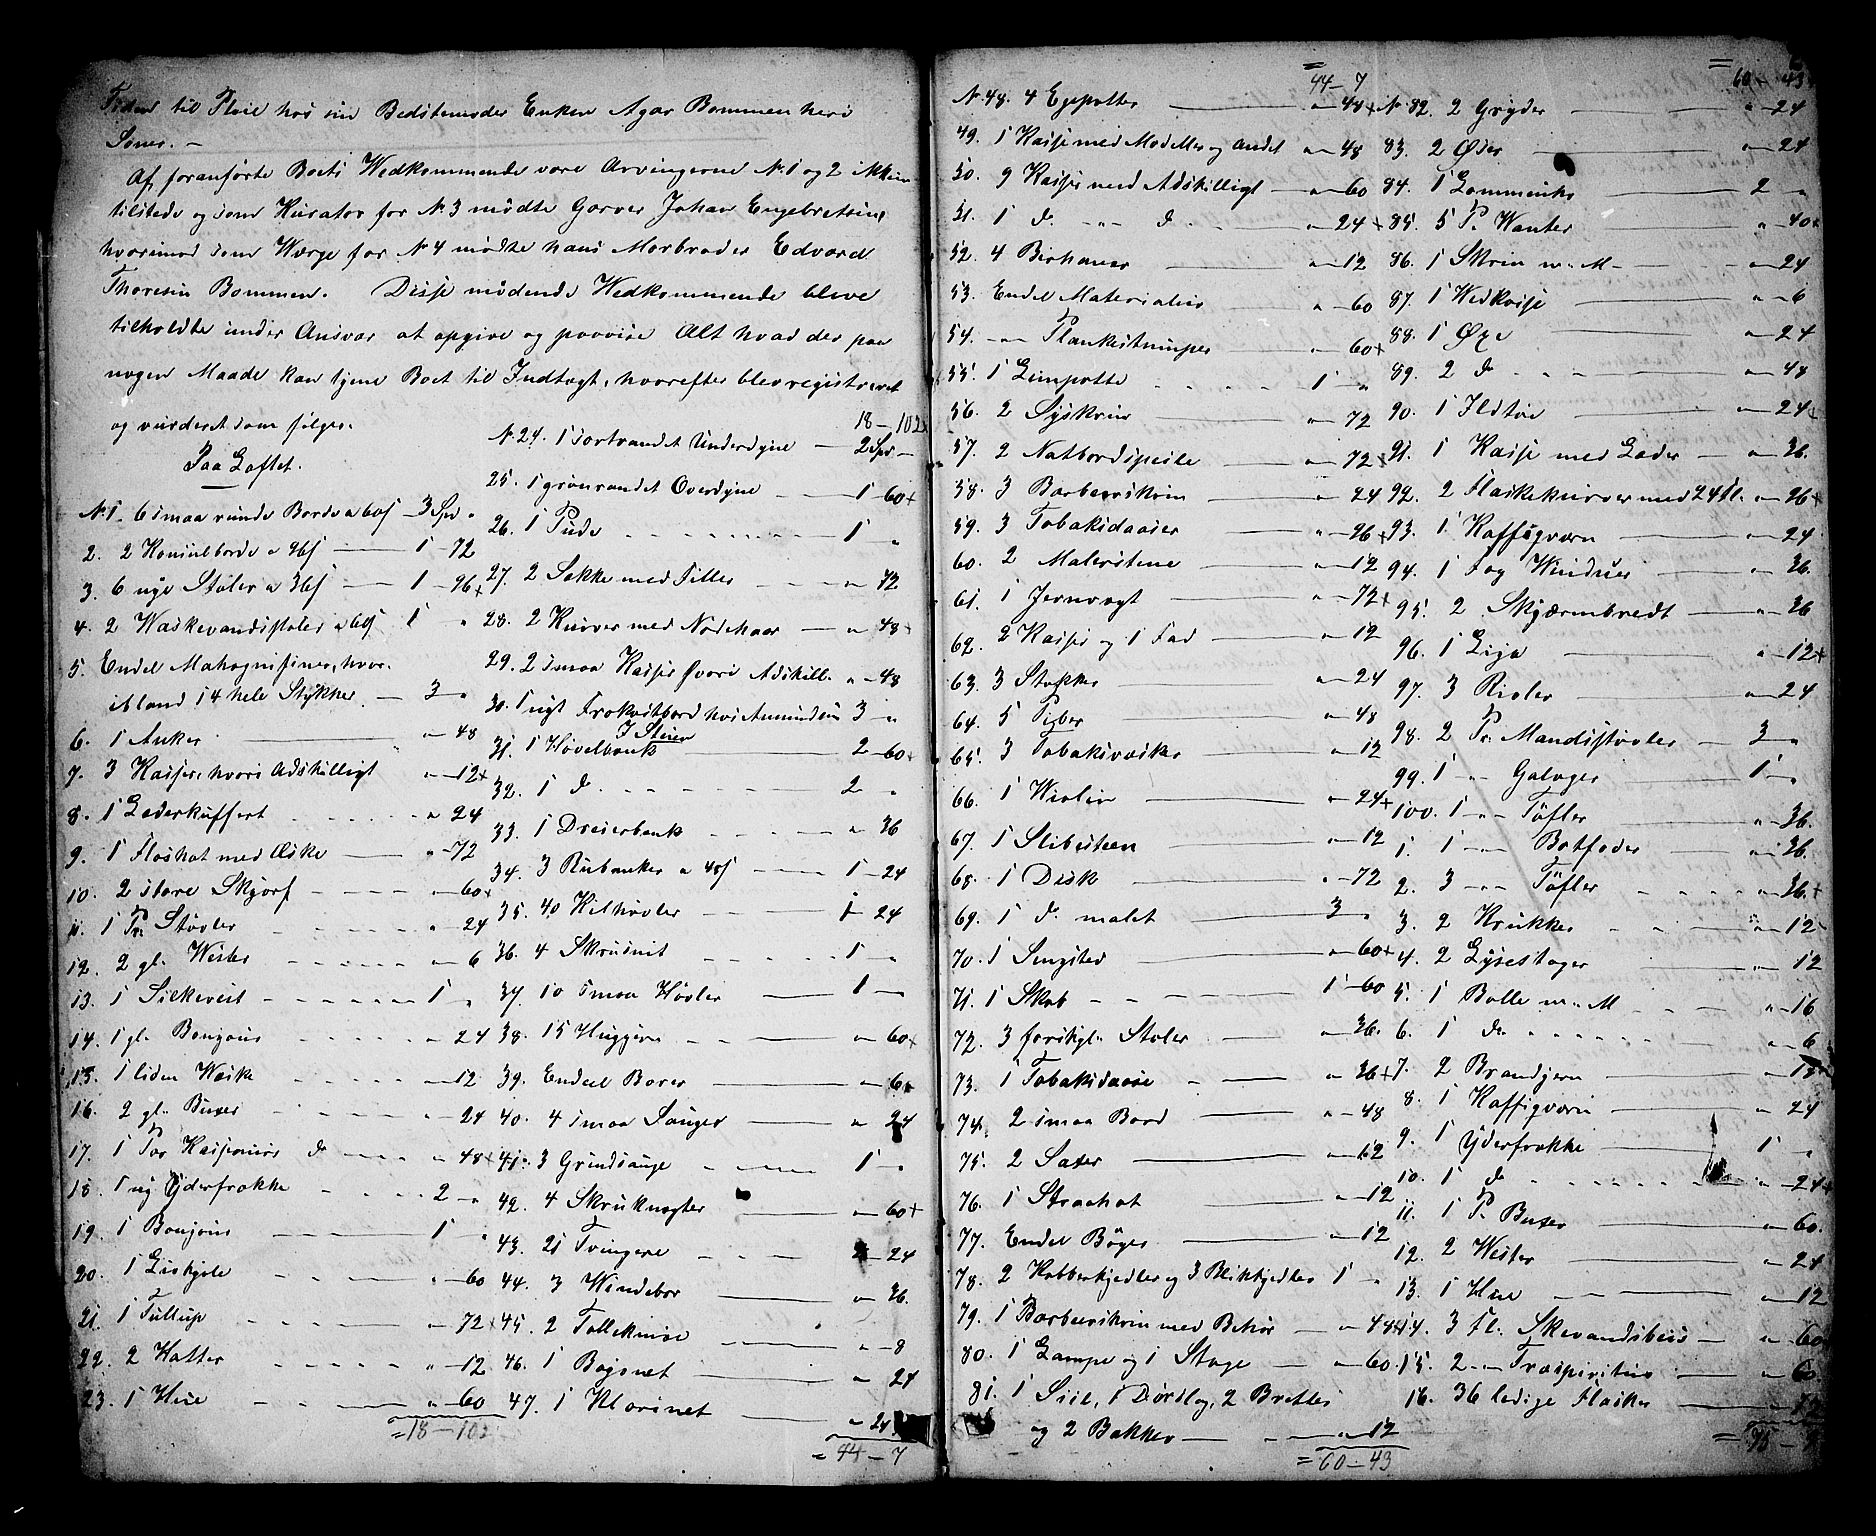 Tiden til Pleie hos sin Bedstemoder Enken Agar Bommen hers
Sønes. –
Af foranførte Boets Vedkommende vare Arvingerne N. 1 og 2 ikke
tilstede og som Kurator for N. 3 mødte Garver Johan Engebretsen,
hvorimod som Værge for N 4 mødte hans Morbroder Edvard
Thoresen Bommen. Disse mødende Vedkommende bleve
tilholdte under Ansvar at opgive og paavise Alt hvad der paa
nogen Maade kan tjene Boet til Indtægt, hvorefter blev registreret
og vurderet som følger.
Paa Loftet.
N. 1. 6 smaa runde Borde a 60ſ — 3 Spd "
2. 2 Konsulborde a 96ſ — 1 – 72
3. 6 nye Stoler a 36ſ — 1 – 96+
4. 2 Vaskevandsstoler a 60ſ 1 "
5. Endel Mahognifiner, hvor-
ibland 14 hele Stykker — 3 "
6. 1 Anker — " 48
7. 3 Kasser, hvori Adskilligt " – 12+
8. 1 Læderkuffert " 24
9. 1 Floshat med Æske — " – 72
10. 2 store Skjørt – 60+
11. 1 Pr. Støvler " 24
12. 2 gl. Vester – 6
13. 1 Silkevest 1 "
14. 1 gl. Bonjour 24
15. 1 liden Vaske – 12
16. 2 gl. Buxer " – 24
17. 1 Par Kasjemirs do " 48+
18. 1 ny Yderfrakke 2 "
19. 1 Bonjour 1 "
20. 1 Livkjole " – 60
21. 1 Pullup " 72+
22. 2 Hatter " – 12
23. 1 Hue " 60
= 18 – 102
18 – 102
N. 24. 1 sortrandet Underdyne — 2 Spd –
25. 1 grønrandet Overdyne 1 – 60+
26. 1 Pude 1 "
27. 2 Sække med Filler " 72
28. 2 Kurver med Nødehaar — " – 48+
29. 2 smaa Kasser hvori Adskill. " – 48
30. 1 nyt Frokostbord hos Amundsen 3 "
I Stuen
31. 1 Høvelbænk — 2 – 60+
32. 1 do 2 "
33. 1 Dreierbænk " 36
34. 3 Rubanker a 48ſ 1 – 24
35. 40 Kilhøvler 1 – 24
36. 4 Skrustit 1 –
37. 10 smaa Høvler — 1 –
38. 15 Huggjern " – 60+
39. Endeel Borer — " – 60
40. 4 smaa Sauger — " 24
41. 3 Grindsauge 1 "
42. 4 Skruknegter — " – 60+
43. 21 Tvingere – 24
44. 3 Vindebor — " 36.
45. 2 Tælleknive — " – 8
46. 1 Bajonet — " 24
47. 1 Klarinet — " 24
= 44 – 7
44 – 7
N. 48. 4 Egepotter — " – 48+
49. 1 Kasse med Modeller og andet " – 48
50. 9 Kasser med Adskilligt — " – 60
51. 1 do " do " – 24+
52. 4 Birhaner — " – 12
53. Endel Materialier — " – 60
54. – " – Plankestumper — " – 60+
55. 1 Limpotte 1 "
56. 2 Syskrin — " – 72
57. 2 Natbordspeile — " – 72+
58. 3 Barbeerskrin — " 24
59. 3 Tobaksdaaser — " – 96+
60. 2 Malerstene — " – 12
61. 1 Jernvægt — " – 72+
62. 2 Kasser og 1 Fad — " – 12
63. 3 Stokke — " – 24
64. 5 Piber — " – 48
65. 3 Tobaksvæsker — " – 12
66. 1 Violin — " – 24+
67. 1 Slibesteen — " – 12
68. 1 Disk — " – 72
69. 1 do malet — 3 "
70. 1 Sengsted — " – 60+
71. 1 Skab 1 – 60
72. 3 forskjl. Stoler — " – 36.
73. 1 Tobaksdaase — " – 36+
74. 2 smaa Bord — " – 48
75. 2 Saxer — " 12
76. 1 Straahat — " – 12
77. Endel Bøger — " – 12
78. 2 Kobberkjedler og 3 Blikkjedler 1 "
79. 1 Barbeerskrin med Behør — " – 48+
80. 1 Lampe og 1 Stage — " – 60
81. 1 Siil, 1 Dørslag, 2 Bretter
og 2 Bakker — " – 12
= 60 – 43
60 – 43
N 82. 2 Gryder — " – 24
83. 2 Øser — " – 24
84. 1 Lommeuhr 2 "
85. 5 Pr. Vanter — " – 40+
86. 1 Skrin m. M – " – 24
87. 1 Vedkasse — " – 6
88. 1 Øxe — " – 24
89. 2 do " – 48
90. 1 Ildtøi — " – 24+
91. 1 Kasse med Læder — " – 36.
92. 2 Flaskekurver med 24 fl. " – 96+
93. 1 Kaffeqværn — " – 24
94. 1 Fag Vinduer — " – 36
95. 2 Skjærmbredt — " – 36
96. 1 Lija — " – 12+
97. 3 Rioler — " – 24
98. 2 Pr. Mandsstøvler — 3 "
99. 1 – " – Galoger — 1 – "
100. 1 – " – Tøfler — " – 36.
1. 1 – " – Botforer — " – 36.
2. 3 – " – Tøfler " – 36+
3. 2 Krukker " – 12
4. 2 Lysestager " – 12
5. 1 Balle m. M " – 16
6. 1 do " – 6
7. 2 Brandjern — " – 12
8. 1 Kaffiqværn — " – 24
9. 1 Yderfrakke — 1 "
10. 1 do " – 24+
11. 1 Pr. Buxer — " – 60.
12. 2 Vester — " – 24
13. 1 Hue — " – 12
14. 3 fl. Skevandsbeis — " – 60+
15. 2 – " – Træspiritus — " – 60
16. 36 ledige Flasker — – 12